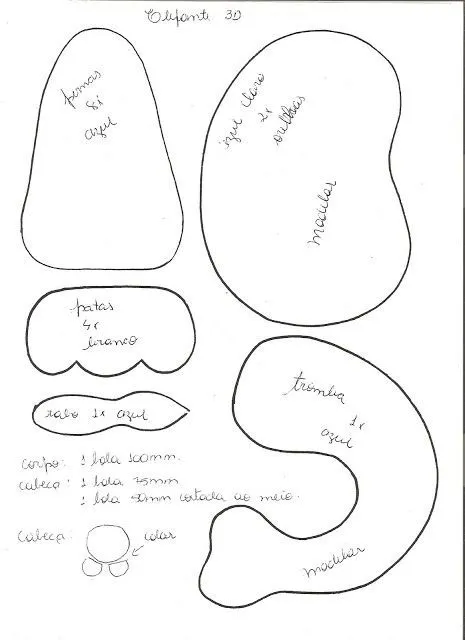 Elefante 3D
pernas
8x
azul
azul claro
2x
orelhas
modelar
patas
4x
branco
rabo 1x azul
tromba
1x
azul
modelar
corpo: 1 bola 100mm.
cabeça: 1 bola 75mm
1 bola 50mm cortada ao meio.
Cabeça:
colar